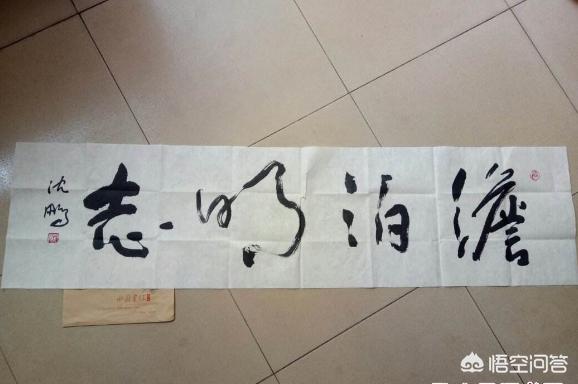 澹泊明志
沈鹏
悟空问答